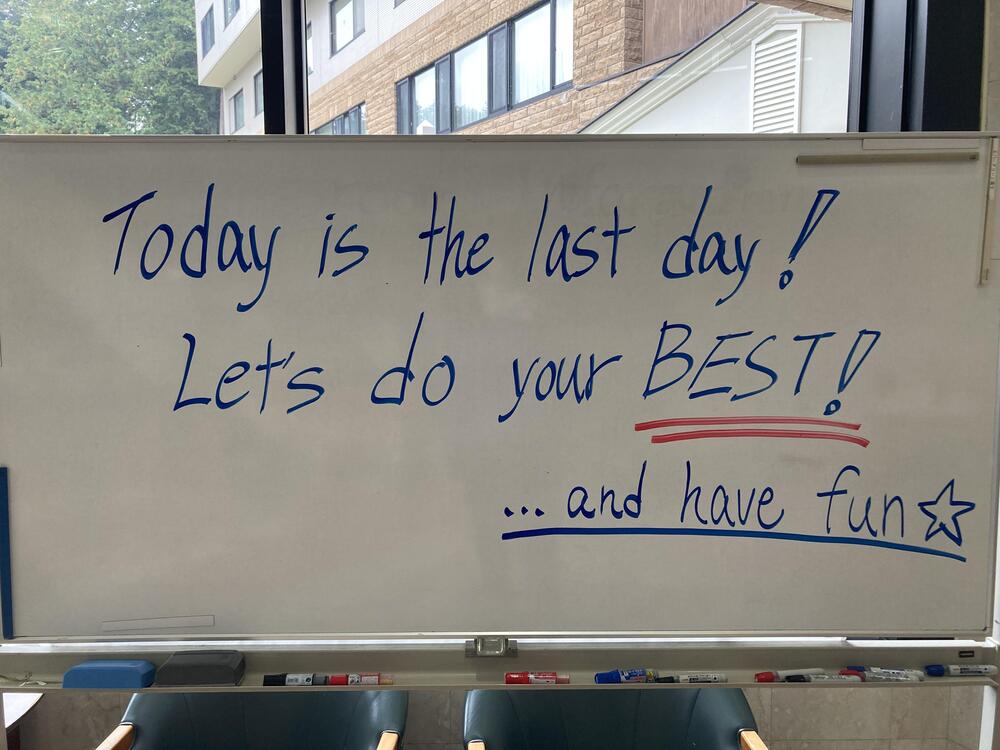 Today is the last day!
Let's do your BEST!
...and have fun☆